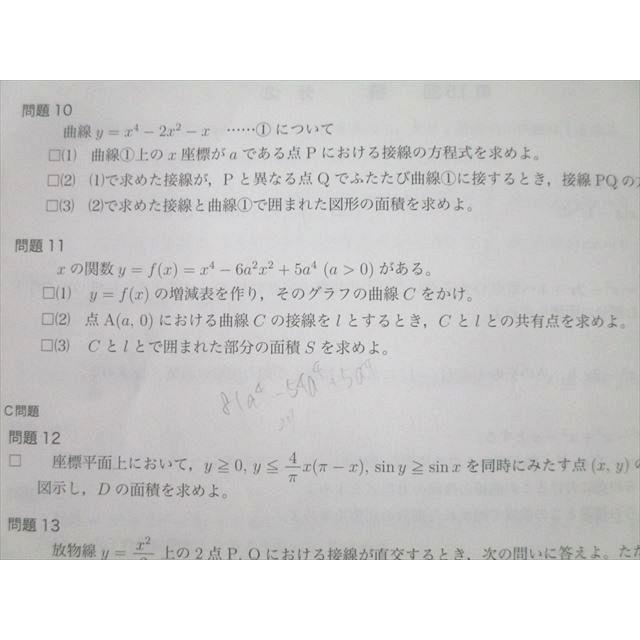 問題10
曲線 y = x⁴ − 2x² − x ……① について
□(1) 曲線①上の x 座標が a である点 P における接線の方程式を求めよ。
□(2) (1)で求めた接線が，P と異なる点 Q でふたたび曲線①に接するとき，接線 PQ の
□(3) (2)で求めた接線と曲線①で囲まれた図形の面積を求めよ。
問題11
x の関数 y = f(x) = x⁴ − 6a²x² + 5a⁴ (a > 0) がある。
□(1) y = f(x) の増減表を作り，そのグラフの曲線 C をかけ。
□(2) 点 A(a, 0) における曲線 C の接線を l とするとき，C と l との共有点を求めよ。
□(3) C と l とで囲まれた部分の面積 S を求めよ。
81a⁴ − 54a⁴ + 5a⁴
C問題
問題12
□ 座標平面上において，y ≧ 0, y ≦ 4/π x(π − x), sin y ≧ sin x を同時にみたす点 (x, y) の
図示し，D の面積を求めよ。
問題13
放物線 y = x²/ 上の 2 点 P, Q における接線が直交するとき，次の問いに答えよ。ただ